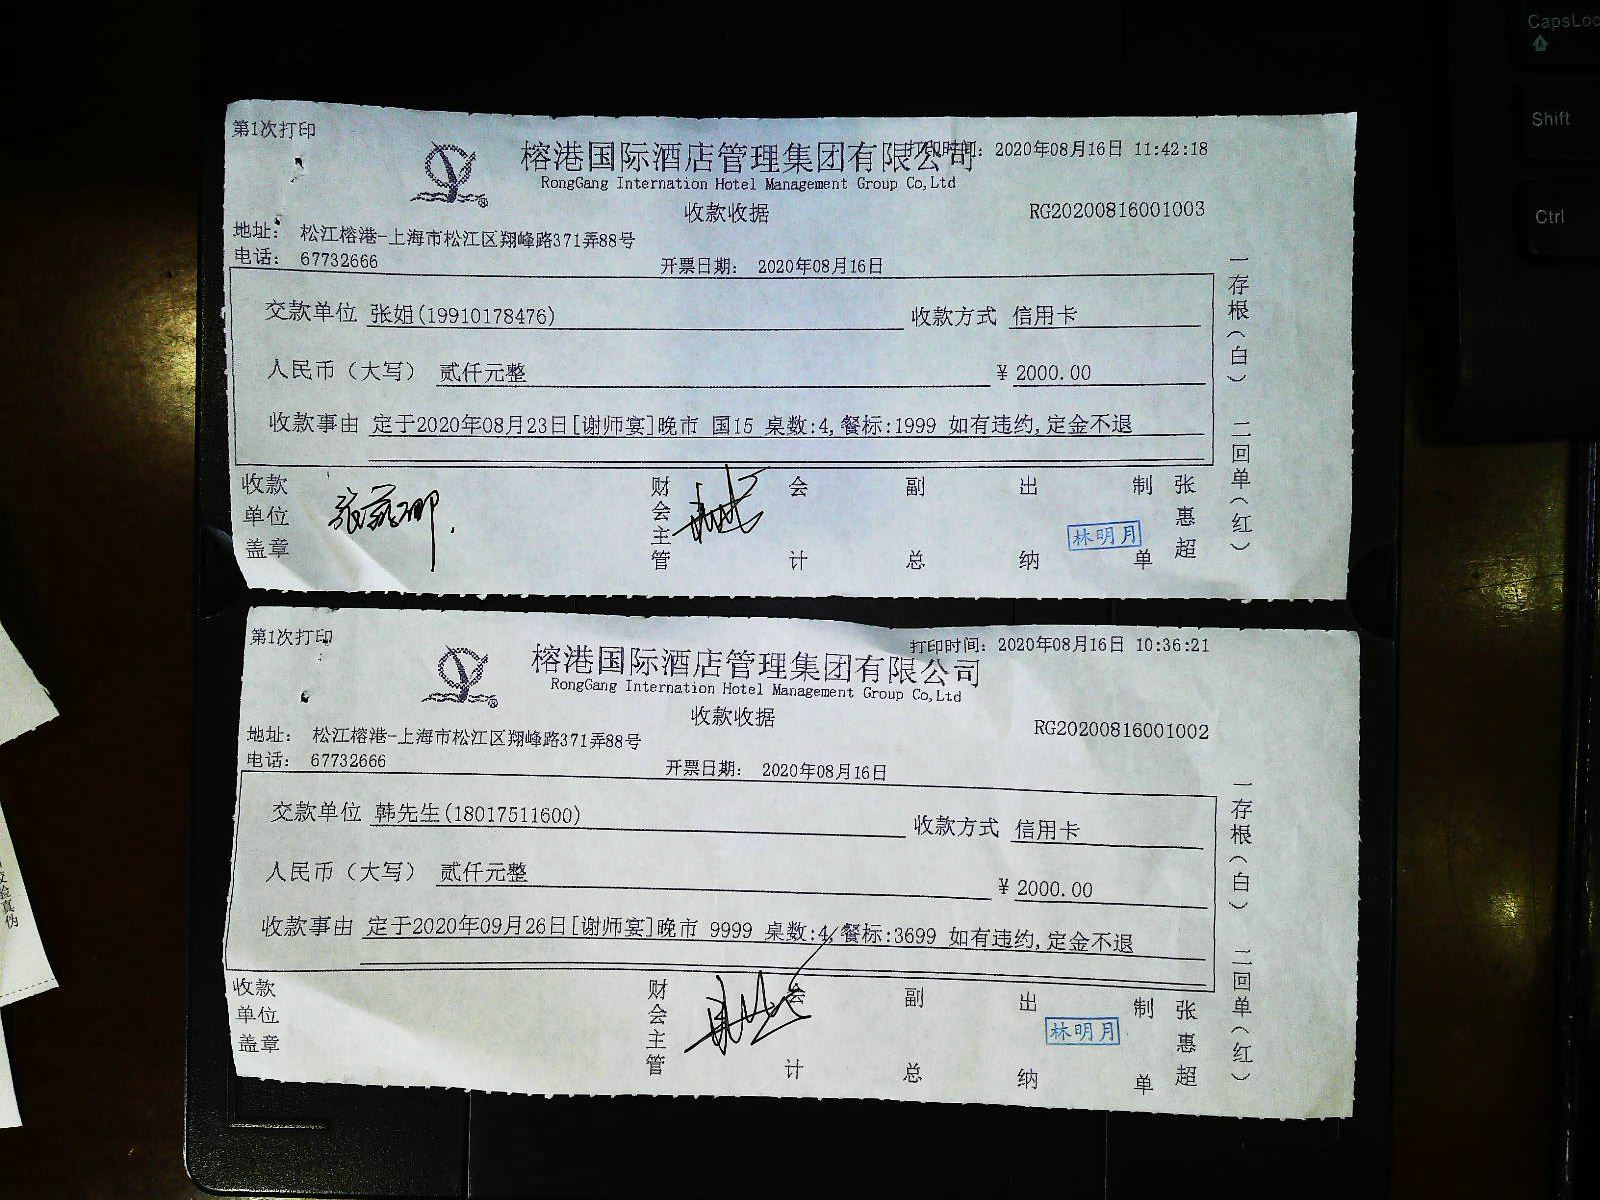 CapsLoc
Shift
Ctrl
第1次打印
榕港国际酒店管理集团有限公司
打印时间: 2020年08月16日 11:42:18
RongGang Internation Hotel Management Group Co,Ltd
收款收据
RG20200816001003
地址: 松江榕港-上海市松江区翔峰路371弄88号
电话: 67732666
开票日期: 2020年08月16日
交款单位 张姐(19910178476) 收款方式 信用卡
人民币(大写) 贰仟元整 ¥ 2000.00
收款事由 定于2020年08月23日[谢师宴]晚市 国15 桌数:4,餐标:1999 如有违约,定金不退
收款单位盖章 财会主管 会计 副总 出纳 林明月 制单 张惠超
一存根(白) 二回单(红)
第1次打印
榕港国际酒店管理集团有限公司
打印时间: 2020年08月16日 10:36:21
RongGang Internation Hotel Management Group Co,Ltd
收款收据
RG20200816001002
地址: 松江榕港-上海市松江区翔峰路371弄88号
电话: 67732666
开票日期: 2020年08月16日
交款单位 韩先生(18017511600) 收款方式 信用卡
人民币(大写) 贰仟元整 ¥ 2000.00
收款事由 定于2020年09月26日[谢师宴]晚市 9999 桌数:4,餐标:3699 如有违约,定金不退
收款单位盖章 财会主管 会计 副总 出纳 林明月 制单 张惠超
一存根(白) 二回单(红)
验真伪